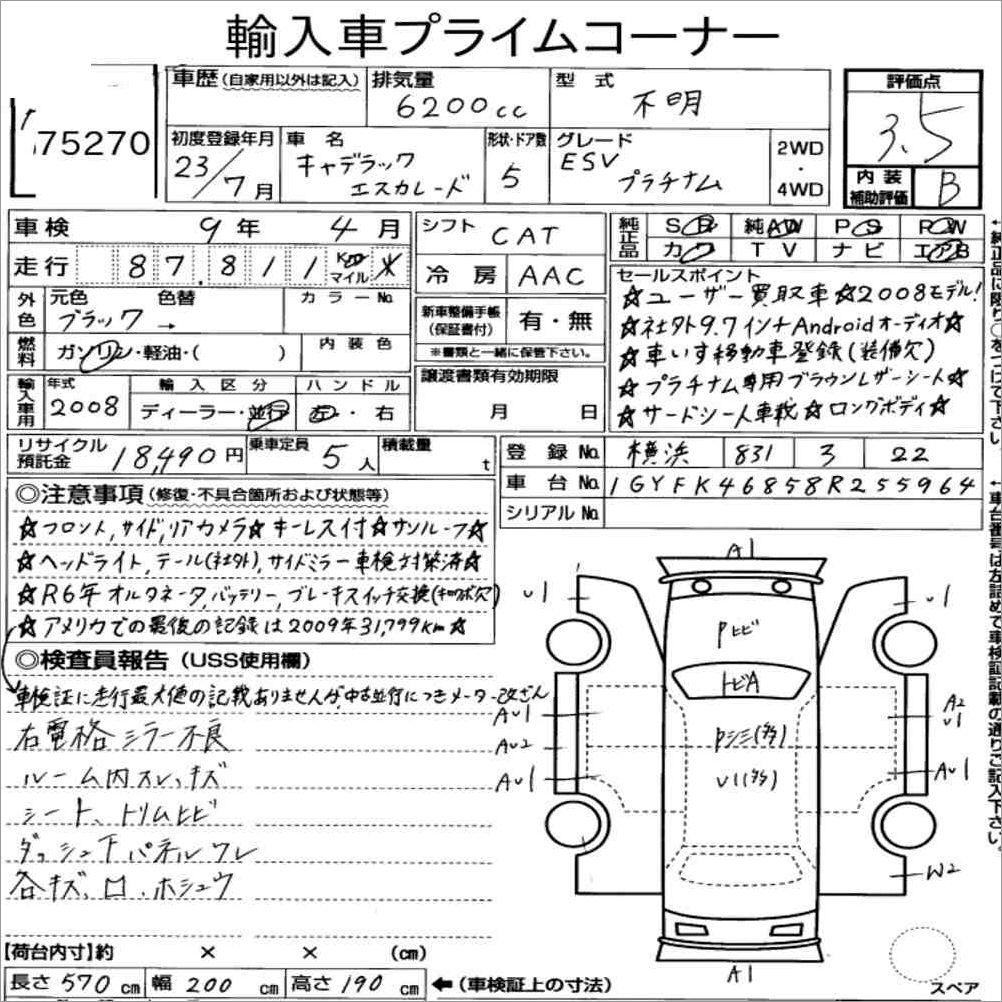 輸入車プライムコーナー
75270
車歴(自家用以外は記入)
排気量 6200cc
型式 不明
評価点 3.5
初度登録年月 23/7月
車名 キャデラック エスカレード
形状・ドア数 5
グレード ESV プラチナム
2WD・4WD
内装補助評価 B
車検 9年 4月
シフト CAT
純正品 SR 純AW PS PW
カワ TV ナビ エアB
走行 87,811 Km マイル
冷房 AAC
外色 元色 ブラック → 色替
カラーNo
燃料 ガソリン・軽油・( )
内装色
新車整備手帳(保証書付) 有・無
※書類と一緒に保管下さい。
セールスポイント
☆ユーザー買取車☆2008モデル!
☆社外9.7インチAndroidオーディオ☆
☆車いす移動車登録(装備欠)
☆プラチナム専用ブラウンレザーシート☆
☆サードシート車載☆ロングボディ☆
輸入車用 年式 2008
輸入区分 ディーラー・並行
ハンドル 左・右
譲渡書類有効期限 月 日
リサイクル預託金 18,490円
乗車定員 5人
積載量 t
登録No. 横浜 831 3 22
車台No. 1GYFK46858R255964
シリアルNo.
◎注意事項(修復・不具合箇所および状態等)
☆フロント,サイド,リアカメラ☆キーレス付☆サンルーフ☆
☆ヘッドライト,テール(社外),サイドミラー車検対策済☆
☆R6年オルタネータ,バッテリー,ブレーキスイッチ交換(キロク欠)
☆アメリカでの最後の記録は2009年31,799km☆
◎検査員報告(USS使用欄)
車検証に走行最大値の記載ありませんが、中古並行につきメーター改ざん
右電格ミラー不良
ルーム内スレ、キズ
シート、トリムヒビ
ダッシュ下パネルワレ
各キズ、凹、ホシュウ
A1
U1
U1
Pヒビ
トビA
AU1
AU2
AU1
Pシミ(多多)
U1(多多)
A2
U1
AU1
W2
A1
【荷台内寸】約 × × (cm)
長さ 570 cm 幅 200 cm 高さ 190 cm ←(車検証上の寸法)
スペア
←純正品に限り○をつけて下さい。
←車台番号は左詰めで車検証記載の通りご記入下さい。